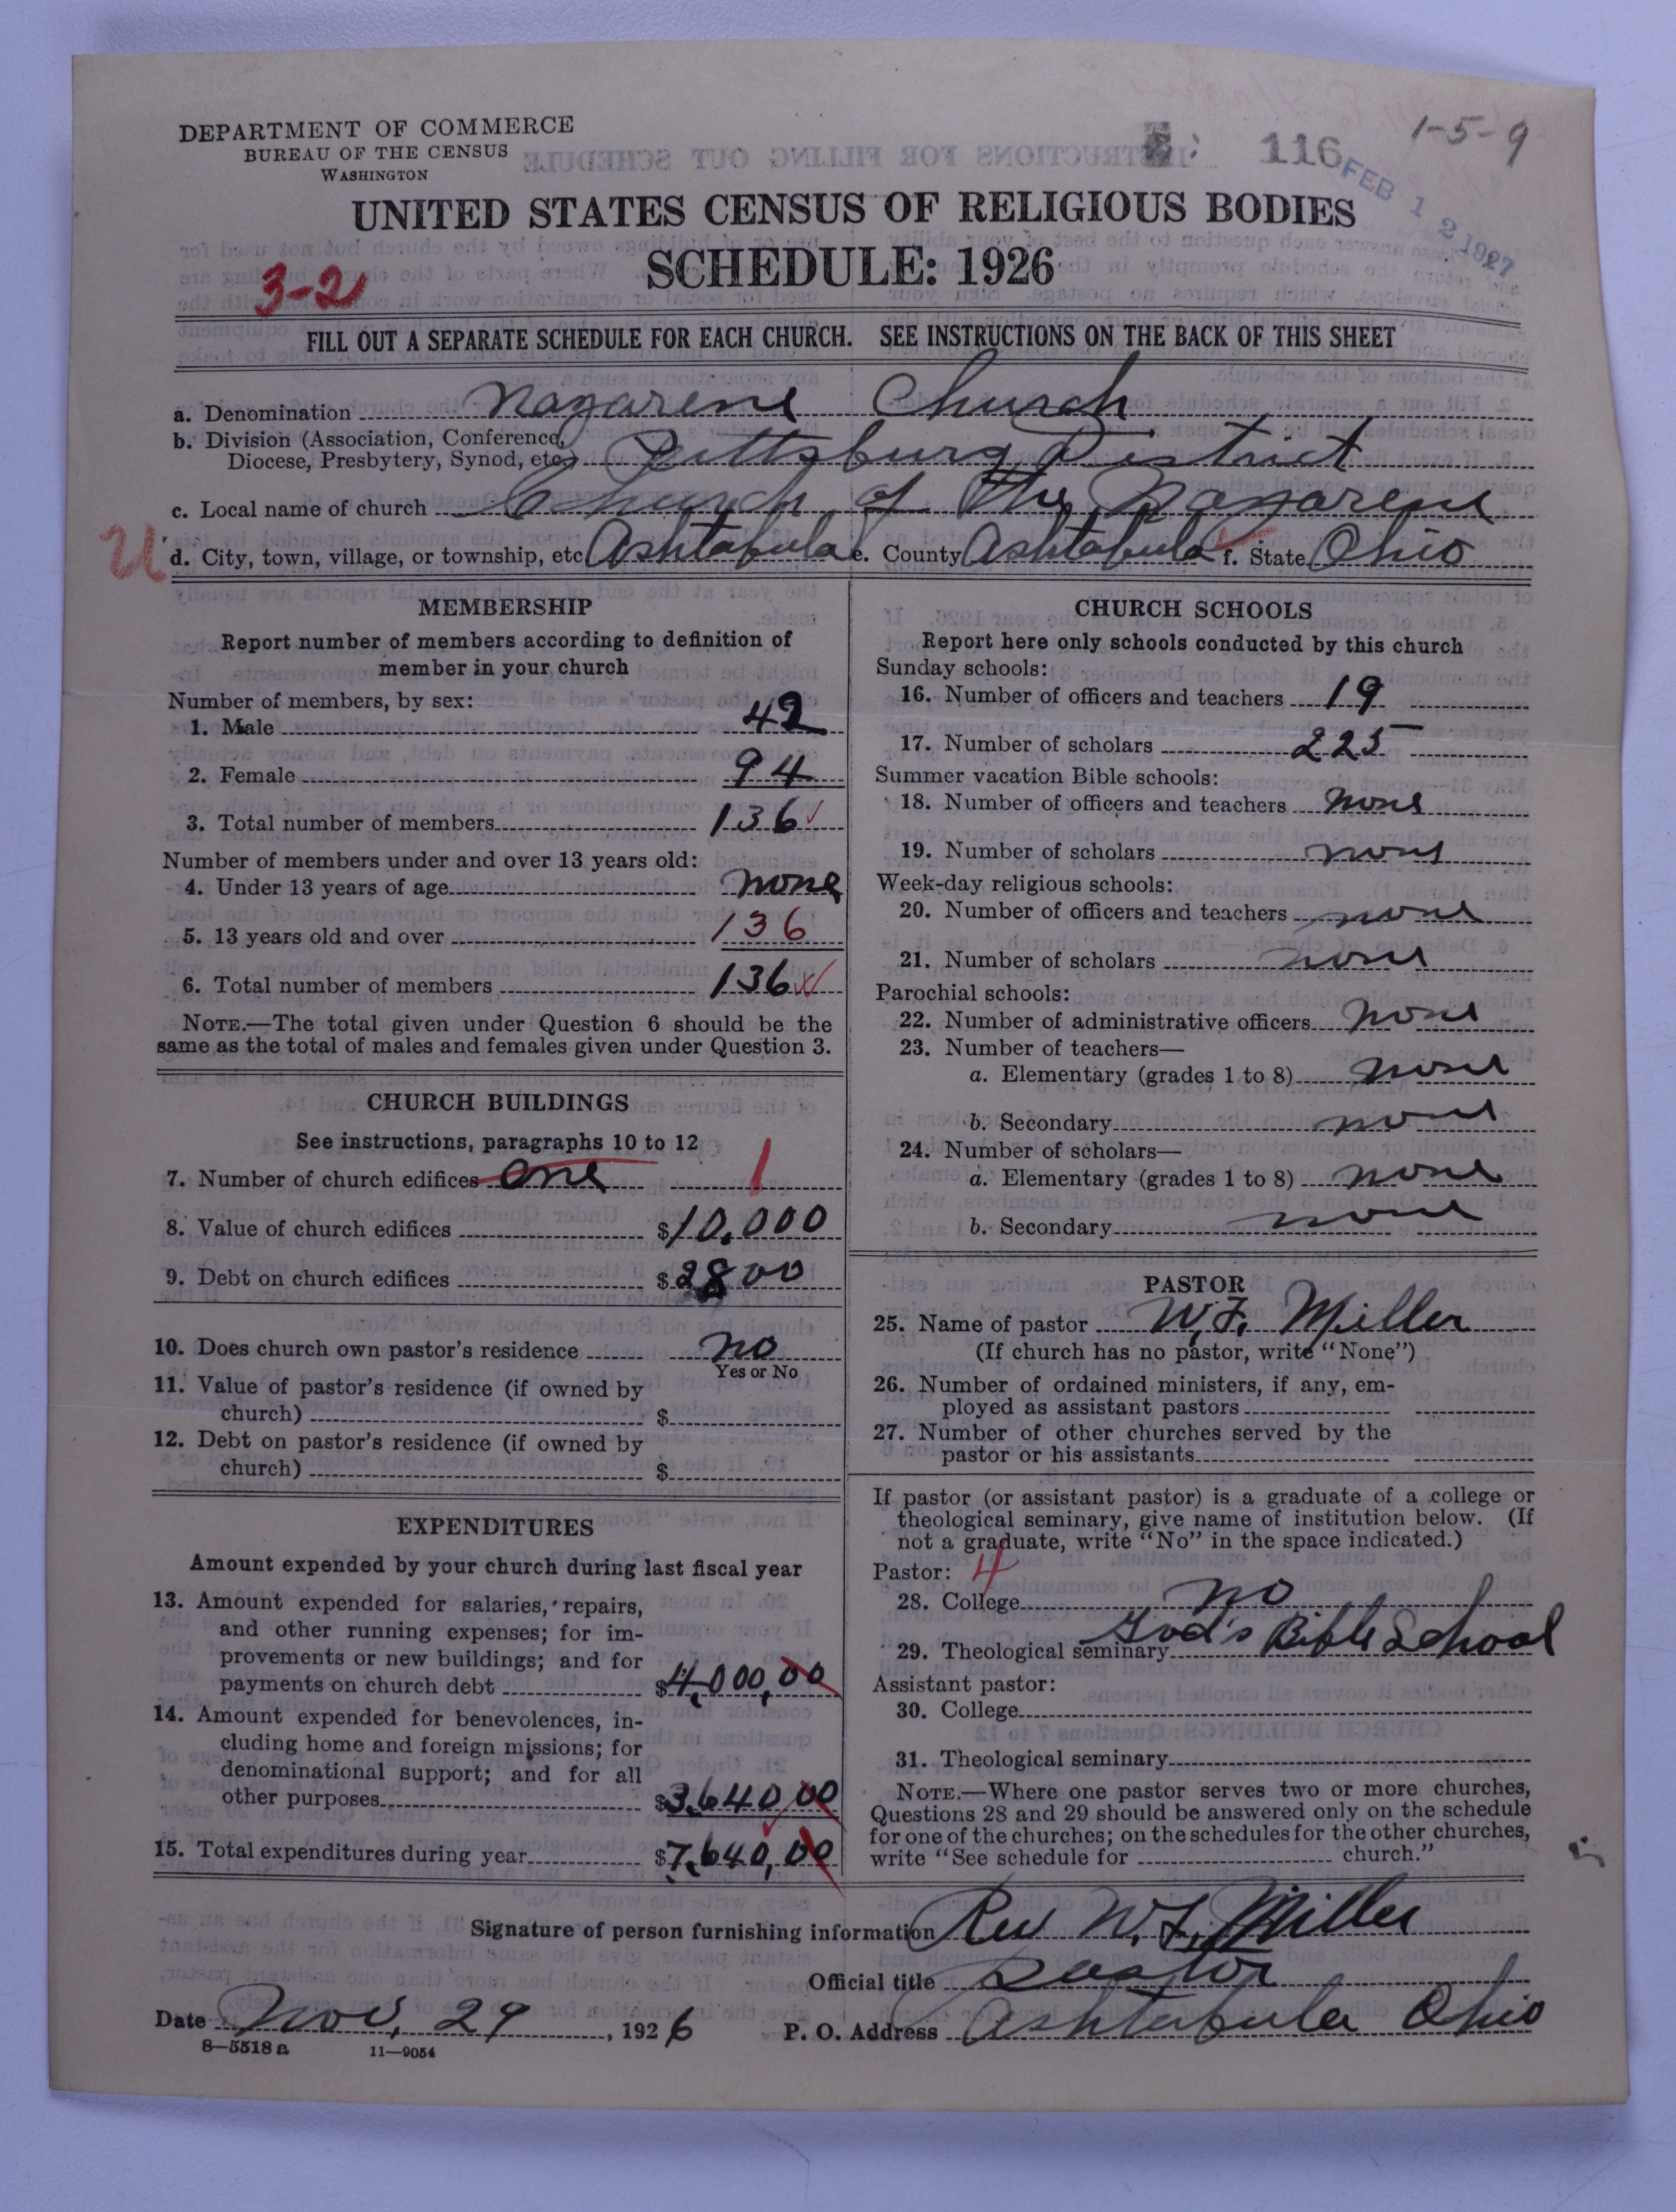 DEPARTMENT OF COMMERCE
BUREAU OF THE CENSUS
WASHINGTON
116
1-5-9
FEB 12 1927
UNITED STATES CENSUS OF RELIGIOUS BODIES
SCHEDULE: 1926
3-2
FILL OUT A SEPARATE SCHEDULE FOR EACH CHURCH. SEE INSTRUCTIONS ON THE BACK OF THIS SHEET
a. Denomination Nazarene Church
b. Division (Association, Conference,
Diocese, Presbytery, Synod, etc.) Pittsburg District
c. Local name of church Church of the Nazarene
U
d. City, town, village, or township, etc Ashtabula e. County Ashtabula f. State Ohio
MEMBERSHIP
Report number of members according to definition of
member in your church
Number of members, by sex:
1. Male 42
2. Female 94
3. Total number of members 136
Number of members under and over 13 years old:
4. Under 13 years of age none
5. 13 years old and over 136
6. Total number of members 136
NOTE.—The total given under Question 6 should be the
same as the total of males and females given under Question 3.
CHURCH BUILDINGS
See instructions, paragraphs 10 to 12
7. Number of church edifices one 1
8. Value of church edifices $10,000
9. Debt on church edifices $2800
10. Does church own pastor's residence no
Yes or No
11. Value of pastor's residence (if owned by
church) $
12. Debt on pastor's residence (if owned by
church) $
EXPENDITURES
Amount expended by your church during last fiscal year
13. Amount expended for salaries, repairs,
and other running expenses; for im-
provements or new buildings; and for
payments on church debt $4,000,00
14. Amount expended for benevolences, in-
cluding home and foreign missions; for
denominational support; and for all
other purposes $3,640 00
15. Total expenditures during year $7,640,00
CHURCH SCHOOLS
Report here only schools conducted by this church
Sunday schools:
16. Number of officers and teachers 19
17. Number of scholars 225
Summer vacation Bible schools:
18. Number of officers and teachers none
19. Number of scholars none
Week-day religious schools:
20. Number of officers and teachers none
21. Number of scholars none
Parochial schools:
22. Number of administrative officers none
23. Number of teachers—
a. Elementary (grades 1 to 8) none
b. Secondary none
24. Number of scholars—
a. Elementary (grades 1 to 8) none
b. Secondary none
PASTOR
25. Name of pastor W. F. Miller
(If church has no pastor, write "None")
26. Number of ordained ministers, if any, em-
ployed as assistant pastors
27. Number of other churches served by the
pastor or his assistants
If pastor (or assistant pastor) is a graduate of a college or
theological seminary, give name of institution below. (If
not a graduate, write "No" in the space indicated.)
Pastor: 4
28. College no
29. Theological seminary God's Bible School
Assistant pastor:
30. College
31. Theological seminary
NOTE.—Where one pastor serves two or more churches,
Questions 28 and 29 should be answered only on the schedule
for one of the churches; on the schedules for the other churches,
write "See schedule for church."
Signature of person furnishing information Rev W. F. Miller
Official title Pastor
Date Nov, 29, 1926 P. O. Address Ashtabula Ohio
8—5518 a 11—9054